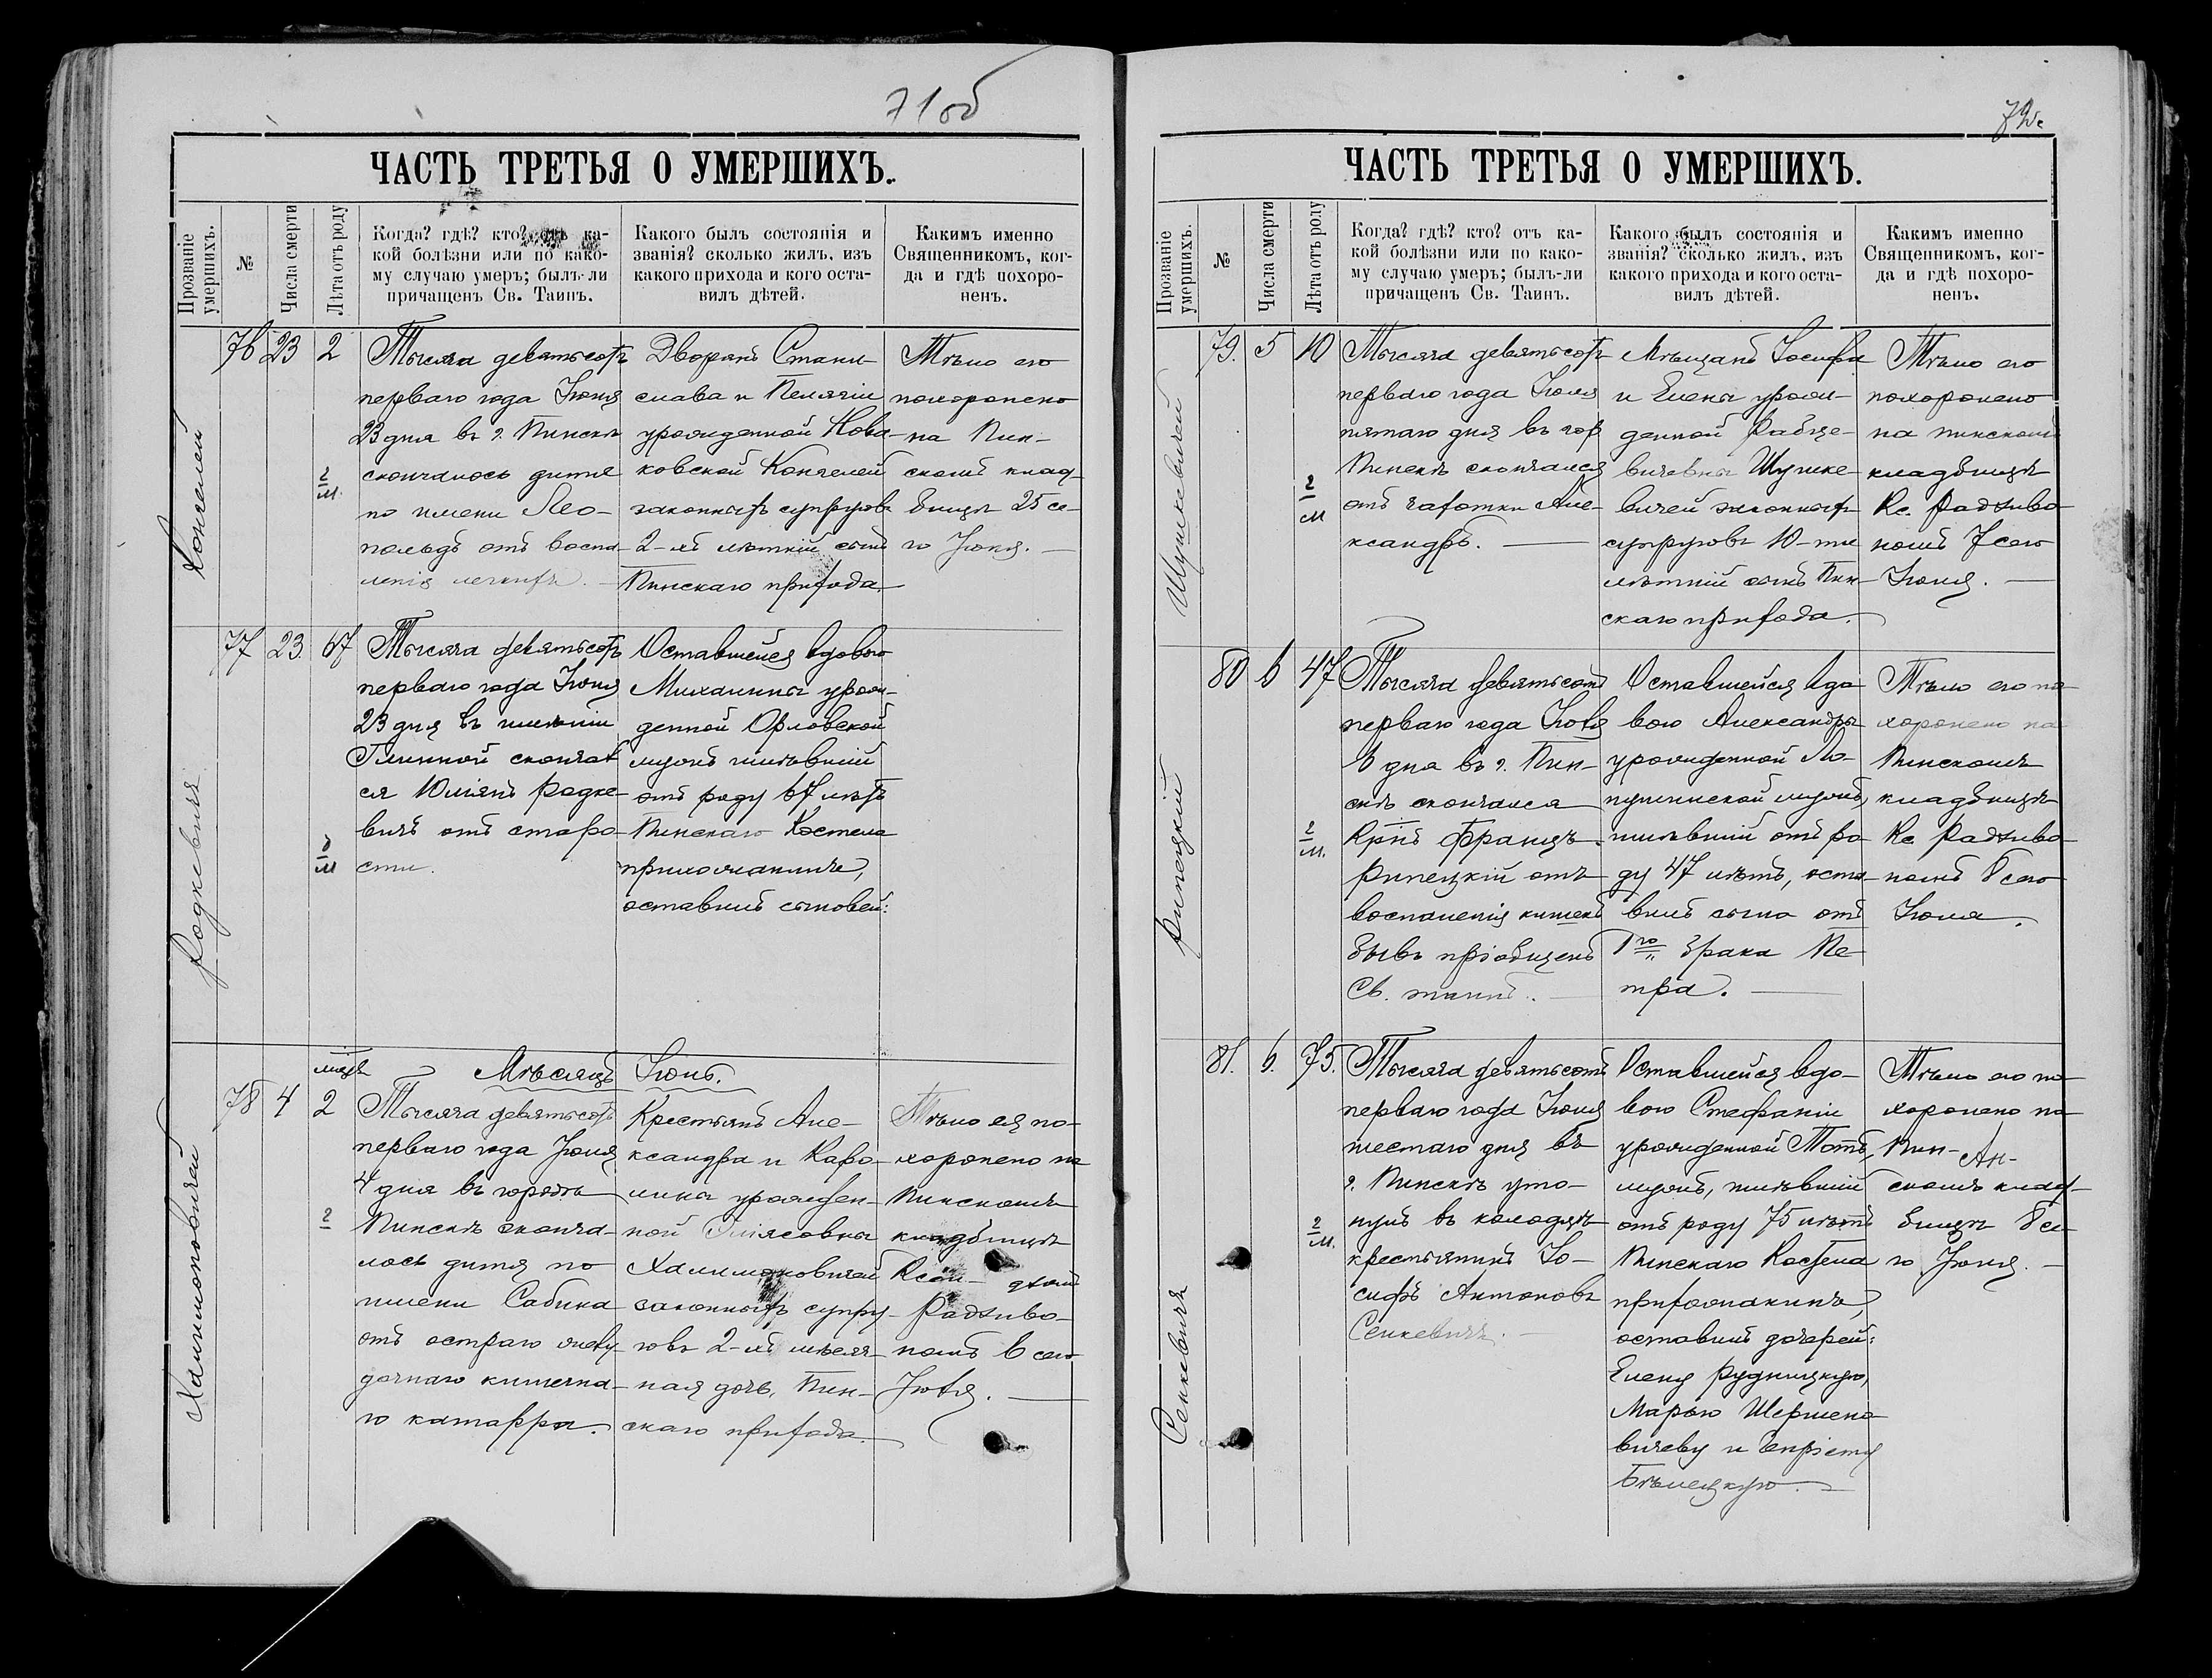 71об
ЧАСТЬ ТРЕТЬЯ О УМЕРШИХЪ.
Прозваніе умершихъ.
№
Числа смерти
Лѣта отъ роду
Когда? гдѣ? кто? отъ ка-
кой болѣзни или по како-
му случаю умеръ; былъ-ли
причащенъ Св. Таинъ.
Какого былъ состоянія и
званія? сколько жилъ, изъ
какого прихода и кого оста-
вилъ дѣтей.
Какимъ именно
Священникомъ, ког-
да и гдѣ похоро-
ненъ.
76 23 2
Тысяча девятьсотъ
перваго года Іюня
23 дня въ г. Пинскѣ
скончалось дитя
по имени Лео-
польдъ отъ воспа-
ленія легкихъ.
Дворянъ Стани-
слава и Пелагіи
урожденной Нова-
ковской
законныхъ супруговъ
2-хъ лѣтній сынъ
Пинскаго прихода.
Тѣло его
похоронено
на Пин-
скомъ клад-
бищѣ 25 се-
го Іюня.
Родкевичъ
77 23. 67
Тысяча девятьсотъ
перваго года Іюня
23 дня въ имѣніи
скончал
ся Юліянъ Родке-
вичъ отъ старо-
сти.
Оставшейся вдовою
Михалины урож-
денной Орловской
мужъ жившій
отъ роду 67 лѣтъ
Пинскаго Костела
прихожанинъ,
оставилъ сыновей:
Мѣсяцъ Іюль.
Халимоновичей
78 4 2
Тысяча девятьсотъ
перваго года Іюля
4 дня въ городѣ
Пинскѣ сконча-
лось дитя по
имени Сабина
отъ остраго желу-
дочнаго кишечна-
го катарра.
Крестьянъ Але-
ксандра и Каро-
лины урожден-
ной
Халимоновичей
законныхъ супру-
говъ 2-хъ мѣсяч-
ная дочь, Пин-
скаго прихода.
Тѣло ея по-
хоронено на
Пинскомъ
кладбищѣ
Ксен-дзомъ
Радзиво-
номъ 6 сего
Іюля.
72
ЧАСТЬ ТРЕТЬЯ О УМЕРШИХЪ.
Прозваніе умершихъ.
№
Числа смерти
Лѣта отъ роду
Когда? гдѣ? кто? отъ ка-
кой болѣзни или по како-
му случаю умеръ; былъ-ли
причащенъ Св. Таинъ.
Какого былъ состоянія и
званія? сколько жилъ, изъ
какого прихода и кого оста-
вилъ дѣтей.
Какимъ именно
Священникомъ, ког-
да и гдѣ похоро-
ненъ.
Шушкевичей
79. 5 10
Тысяча девятьсотъ
перваго года Іюля
пятаго дня въ гор
Пинскѣ скончался
отъ чахотки Але-
ксандръ.
Мѣщанъ Іосифа
и Елены урож-
денной Рабце-
вичевны Шушке-
вичей законныхъ
супруговъ 10-ти
лѣтній сынъ Пин-
скаго прихода.
Тѣло его
похоронено
на пинскомъ
кладбищѣ
Кс. Радзиво-
номъ 7 сего
Іюля.
Рипецкій
80 6 47
Тысяча девятьсотъ
перваго года Іюля
6 дня въ г. Пин-
скѣ скончался
Францъ
Рипецкій отъ
воспаленія кишекъ
бывъ пріобщенъ
Св. таинъ.
Оставшейся вдо-
вою Александры
урожденной Ло-
пушинской мужъ,
жившій отъ ро-
ду 47 лѣтъ, оста-
вилъ сына отъ
1го брака Пе-
тра.
Тѣло его по-
хоронено на
Пинскомъ
кладбищѣ
Кс. Радзиво-
номъ 8 сего
Іюля.
Сенкевичъ
81. 6. 75.
Тысяча девятьсотъ
перваго года Іюля
шестаго дня въ
г. Пинскѣ уто-
нулъ въ колодцѣ
крестьянинъ Іо-
сифъ Антоновъ
Сенкевичъ.
Оставшейся вдо-
вою Стефаніи
урожденной
мужъ, жившій
отъ роду 75 лѣтъ
Пинскаго Костела
прихожанинъ,
оставилъ дочерей:
Елену Рудницкую,
Марью
и Генріету
Бѣлецкую.
Тѣло его по-
хоронено на
Пин-
скомъ клад-
бищѣ 8 се-
го Іюля.